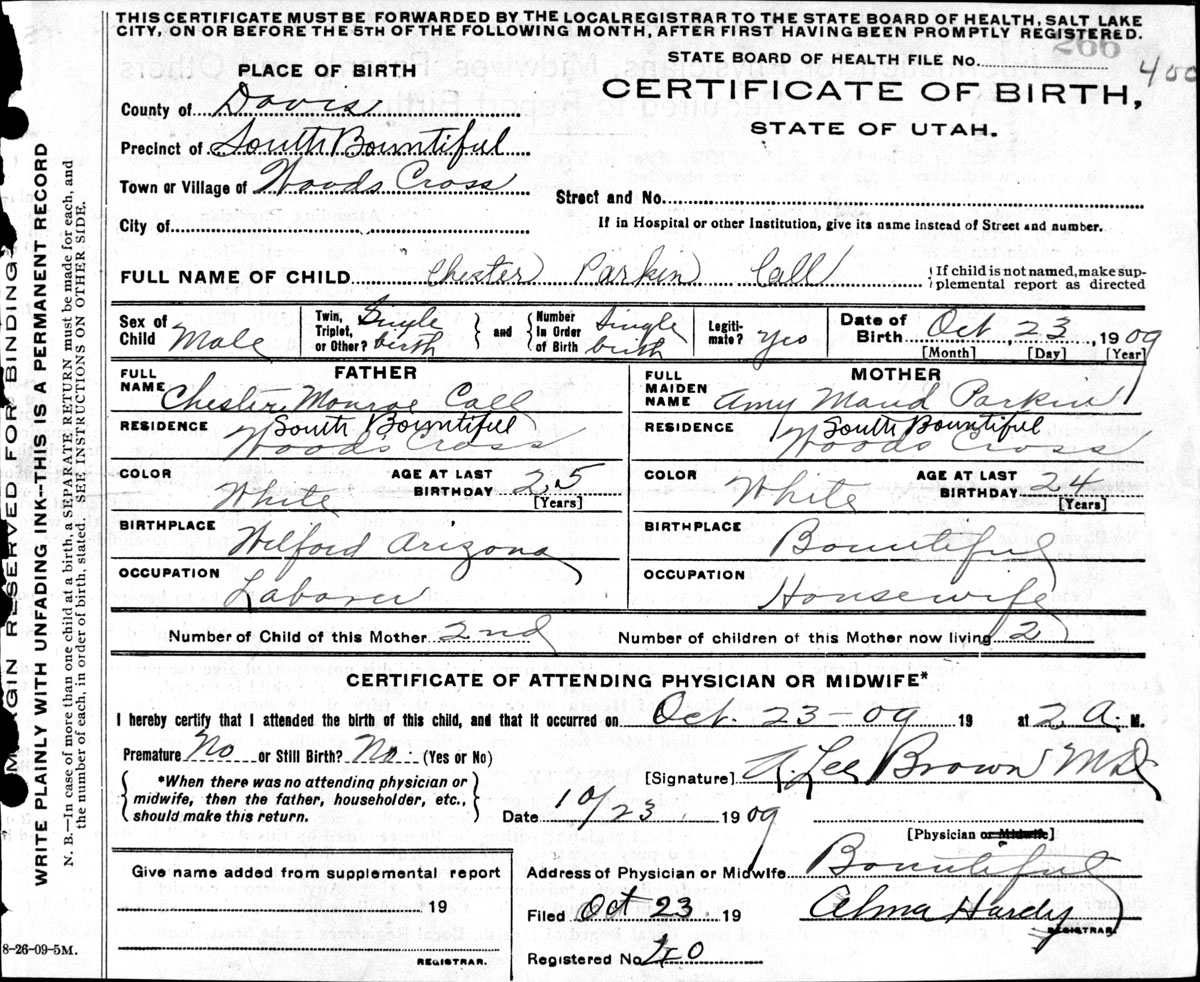 THIS CERTIFICATE MUST BE FORWARDED BY THE LOCAL REGISTRAR TO THE STATE BOARD OF HEALTH, SALT LAKE
CITY, ON OR BEFORE THE 5TH OF THE FOLLOWING MONTH, AFTER FIRST HAVING BEEN PROMPTLY REGISTERED.
266
STATE BOARD OF HEALTH FILE No.
400
PLACE OF BIRTH
CERTIFICATE OF BIRTH,
STATE OF UTAH.
County of Davis
Precinct of South Bountiful
Town or Village of Woods Cross
Street and No.
City of
If in Hospital or other Institution, give its name instead of Street and number.
FULL NAME OF CHILD Chester Parkin Call
If child is not named, make sup-
plemental report as directed
Sex of Child Male
Twin, Triplet, or Other? Single birth
and
Number in Order of Birth Single birth
Legiti-mate? Yes
Date of Birth Oct 23 1909
[Month] [Day] [Year]
FATHER
FULL NAME Chester Monroe Call
RESIDENCE South Bountiful
Woods Cross
COLOR White
AGE AT LAST BIRTHDAY 25
[Years]
BIRTHPLACE Wilford Arizona
OCCUPATION Laborer
MOTHER
FULL MAIDEN NAME Amy Maud Parkin
RESIDENCE South Bountiful
Woods Cross
COLOR White
AGE AT LAST BIRTHDAY 24
[Years]
BIRTHPLACE Bountiful
OCCUPATION Housewife
Number of Child of this Mother 2nd
Number of children of this Mother now living 2
CERTIFICATE OF ATTENDING PHYSICIAN OR MIDWIFE*
I hereby certify that I attended the birth of this child, and that it occurred on Oct. 23-09 19 at 2 A. M.
Premature No or Still Birth? No. (Yes or No)
*When there was no attending physician or
midwife, then the father, householder, etc.,
should make this return.
[Signature] A. Lee Brown MD
Date 10/23 1909
[Physician or Midwife]
Give name added from supplemental report
19
REGISTRAR.
Address of Physician or Midwife Bountiful
Filed Oct 23 19
Alma Hardy
REGISTRAR.
Registered No. 40
8-26-09-5M.
MARGIN RESERVED FOR BINDING
WRITE PLAINLY WITH UNFADING INK--THIS IS A PERMANENT RECORD
N. B.—In case of more than one child at a birth, a SEPARATE RETURN must be made for each, and
the number of each, in order of birth, stated. SEE INSTRUCTIONS ON OTHER SIDE.